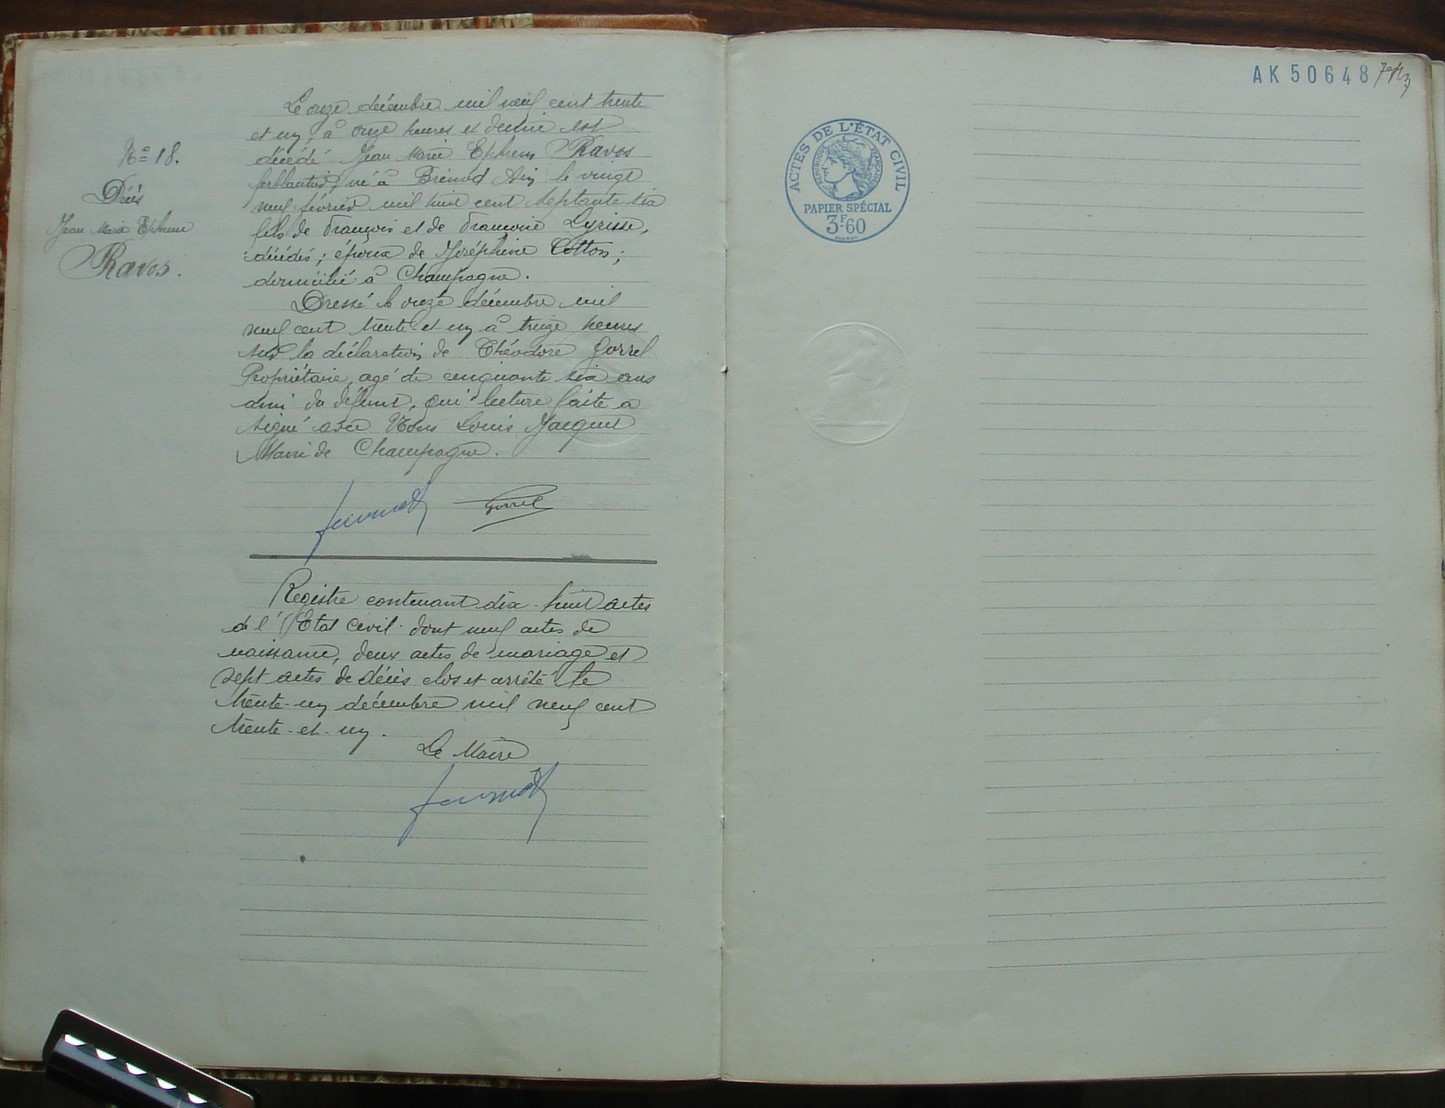 N° 18.
Décès
Jean Marie Ephrem
Ravos.
Le onze décembre mil neuf cent trente
et un, à onze heures et demie est
décédé Jean Marie Ephrem Ravos
ferblantier, né à Brénod Ain le vingt
neuf février mil huit cent septante six
fils de François et de Françoise Lyrisse,
décédés; époux de Joséphine Cotton;
domicilié à Champagne.
Dressé le onze décembre mil
neuf cent trente et un à treize heures
sur la déclaration de Théodore Gorrel
Propriétaire, agé de cinquante six ans
ami du défunt, qui lecture faite a
signé avec Nous Louis Jacquet
Maire de Champagne.
Gorrel
Registre contenant dix-huit actes
de l'Etat Civil dont neuf actes de
naissance, deux actes de mariage et
sept actes de décès clos et arrêté le
trente-un décembre mil neuf cent
trente-et-un.
Le Maire
AK 50648
ACTES DE L'ÉTAT CIVIL
PAPIER SPÉCIAL
3F60